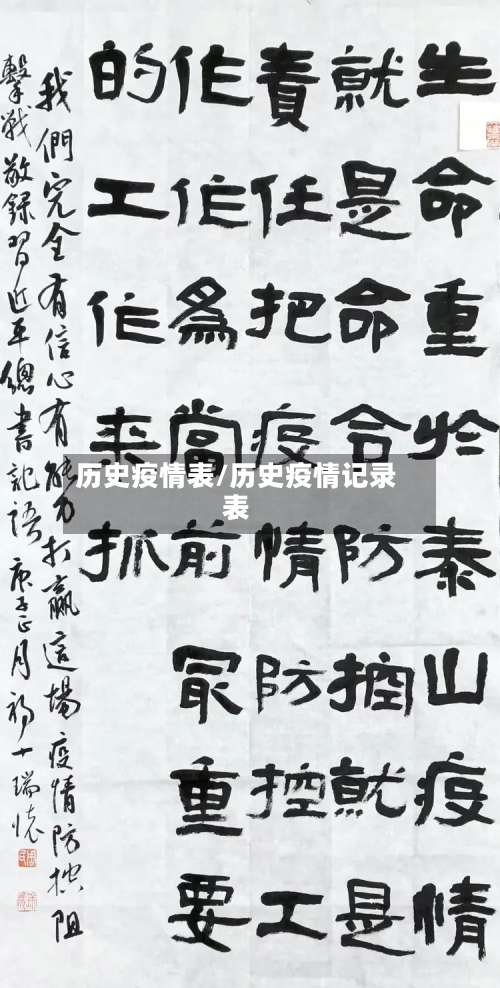 生命重於泰山疫情
就是命合防控就是
責任把疫情防控工
作作為當前冣重要
的工作来抓
我們完全有信心有能力打贏這場疫情防控阻
擊戰敬錄習近平總書記語 庚子正月初十瑞
历史疫情表/历史疫情记录
表